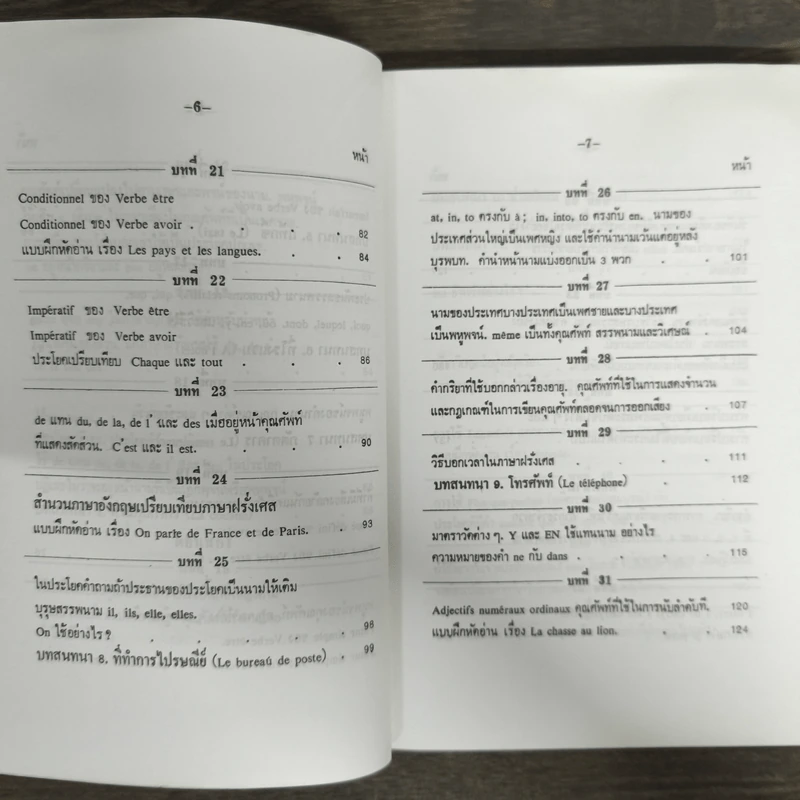 –6–
หน้า
บทที่ 21
Conditionnel ของ Verbe être
Conditionnel ของ Verbe avoir . . . . 82
แบบฝึกหัดอ่าน เรื่อง Les pays et les langues. . . 84
บทที่ 22
Impératif ของ Verbe être
Impératif ของ Verbe avoir
ประโยคเปรียบเทียบ Chaque และ tout . . . 86
บทที่ 23
de แทน du, de la, de l' และ des เมื่ออยู่หน้าคุณศัพท์
ที่แสดงสัดส่วน. C'est และ il est. . . . 90
บทที่ 24
สำนวนภาษาอังกฤษเปรียบเทียบภาษาฝรั่งเศส
แบบฝึกหัดอ่าน เรื่อง On parle de France et de Paris. . 93
บทที่ 25
ในประโยคคำถามถ้าประธานของประโยคเป็นนามให้เติม
บุรุษสรรพนาม il, ils, elle, elles.
On ใช้อย่างไร ? . . . . . 98
บทสนทนา 8. ที่ทำการไปรษณีย์ (Le bureaú de poste) . 99
–7–
หน้า
บทที่ 26
at, in, to ตรงกับ à ; in, into, to ตรงกับ en. นามของ
ประเทศส่วนใหญ่เป็นเพศหญิง และใช้คำนำนามเว้นแต่อยู่หลัง
บุรพบท. คำนำหน้านามแบ่งออกเป็น 3 พวก . . 101
บทที่ 27
นามของประเทศบางประเทศเป็นเพศชายและบางประเทศ
เป็นพหูพจน์. même เป็นทั้งคุณศัพท์ สรรพนามและวิเศษณ์ . 104
บทที่ 28
คำกริยาที่ใช้บอกกล่าวเรื่องอายุ. คุณศัพท์ที่ใช้ในการแสดงจำนวน
และกฎเกณฑ์ในการเขียนคุณศัพท์ตลอดจนการออกเสียง . 107
บทที่ 29
วิธีบอกเวลาในภาษาฝรั่งเศส . . . . 111
บทสนทนา 9. โทรศัพท์ (Le téléphone) . . . 112
บทที่ 30
มาตราวัดต่าง ๆ. Y และ EN ใช้แทนนาม อย่างไร
ความหมายของคำ ne กับ dans . . . . 115
บทที่ 31
Adjectifs numéraux ordinaux คุณศัพท์ที่ใช้ในการนับลำดับที่. 120
แบบฝึกหัดอ่าน เรื่อง La chasse au lion. . . 124